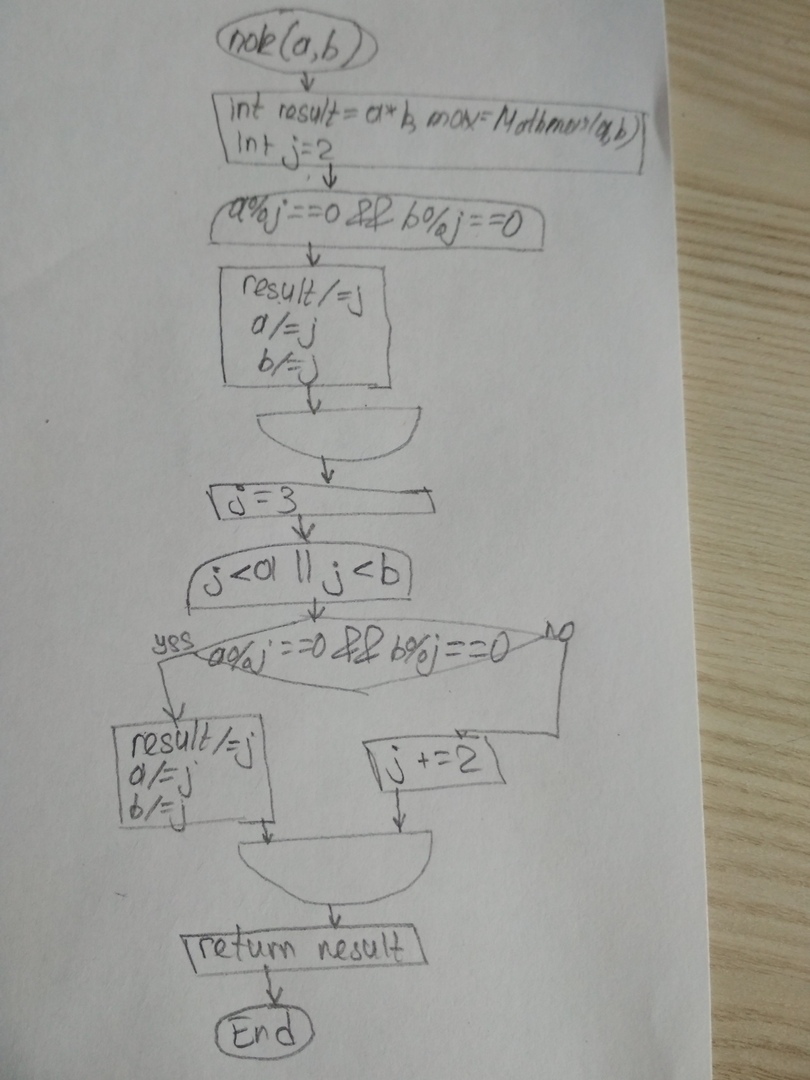 nok(a,b)
int result = a*b, max=Math.max(a,b)
int j=2
a%j==0 && b%j==0
result/=j
a/=j
b/=j
j=3
j<a || j<b
yes
a%j==0 && b%j==0
no
result/=j
a/=j
b/=j
j+=2
return result
End